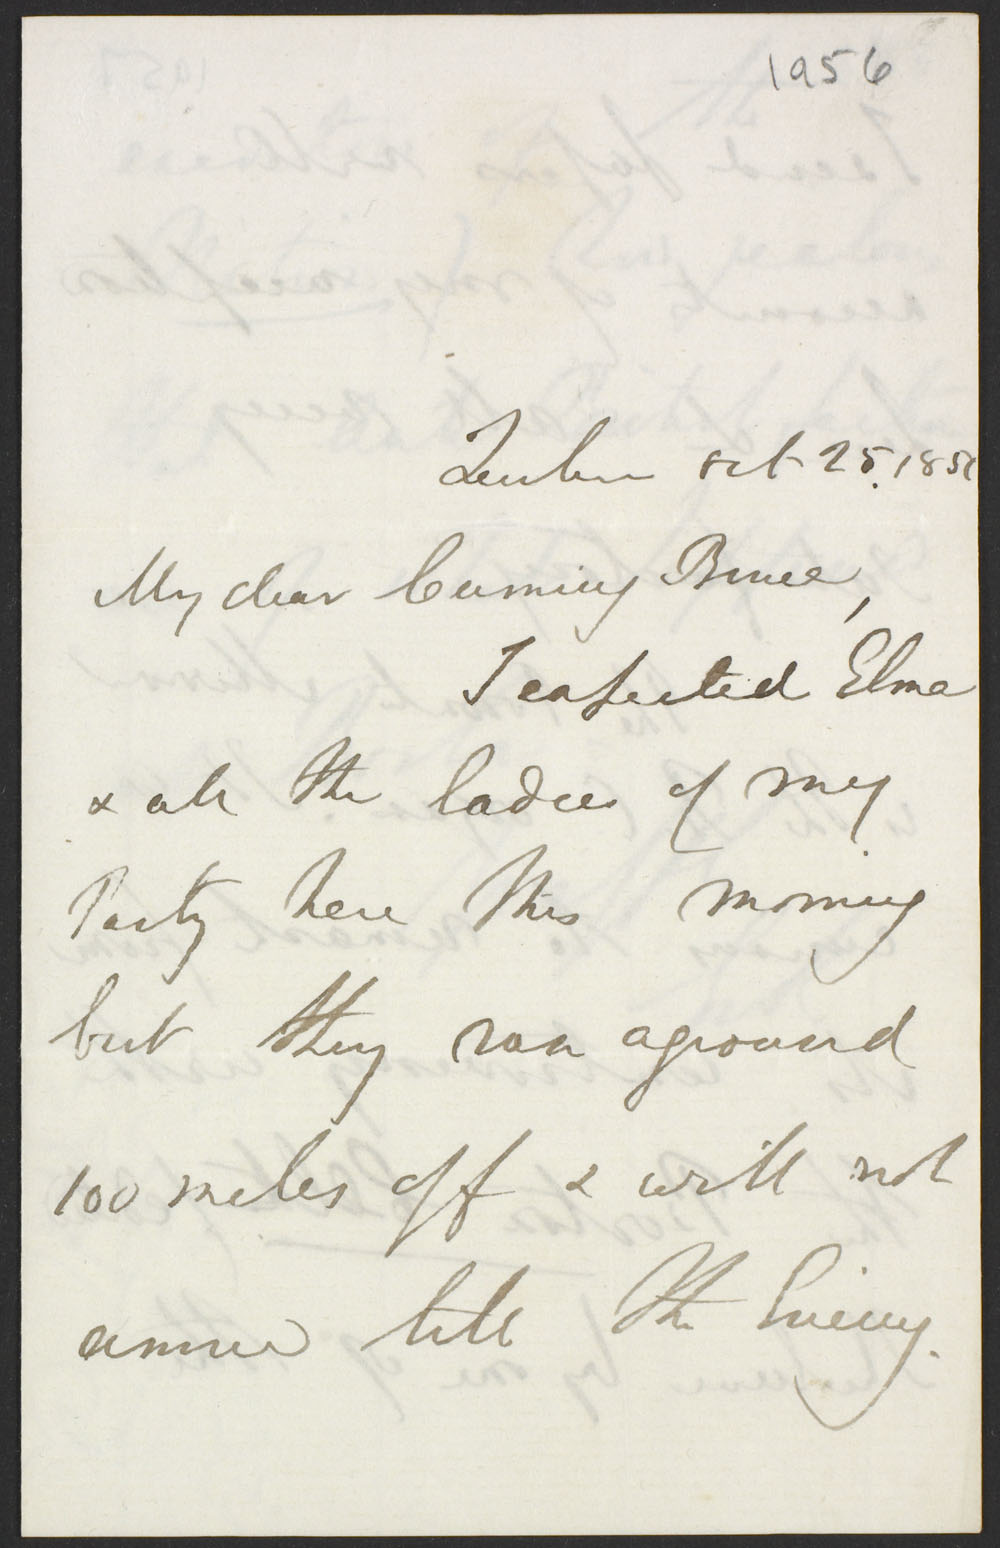 1956
Quebec Oct 25. 185
My dear Cumming Bruce,
I expected Elma
& all the Ladies of my
Party here this morning
but they ran aground
100 miles off & will not
arrive till the Evening.